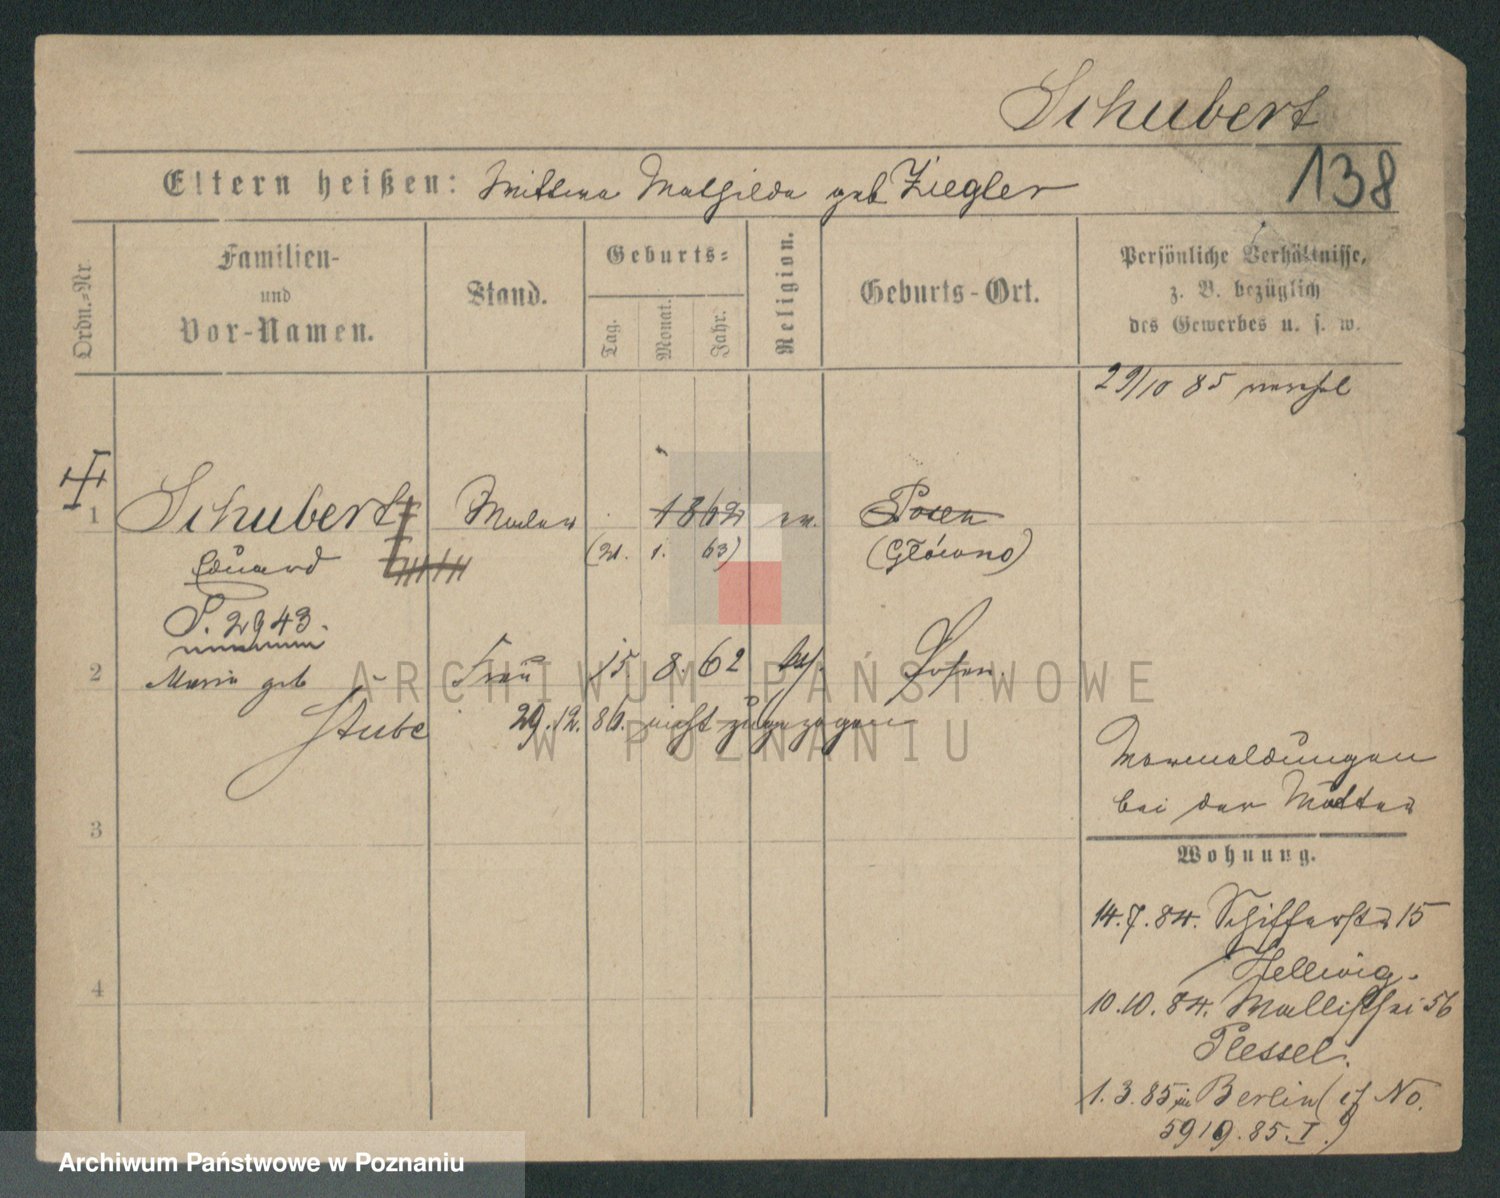 Schubert
138
Eltern heißen: Wittwe Mathilde geb Ziegler
Ordn.-Nr.
Familien-
und
Vor-Namen.
Stand.
Geburts-
Tag.
Monat.
Jahr.
Religion.
Geburts-Ort.
Persönliche Verhältnisse,
z. B. bezüglich
des Gewerbes u. s. w.
29/10 85
1 Schubert Maler 1862 ev. Posen
Eduard (21. 1. 63) (Główno)
P. 2943.
2 Maria geb Frau 15. 8. 62 Posen
Stube 29.12.86. nicht zugezogen
3
4
Normeldungen
bei der Mutter
Wohnung.
14.7.84. Schifferstr 15
Hellwig.
10.10.84. Wallischei 56
Plessel.
1.3.85 in Berlin (cf No.
5919.85.I.)
ARCHIWUM PAŃSTWOWE
W POZNANIU
Archiwum Państwowe w Poznaniu